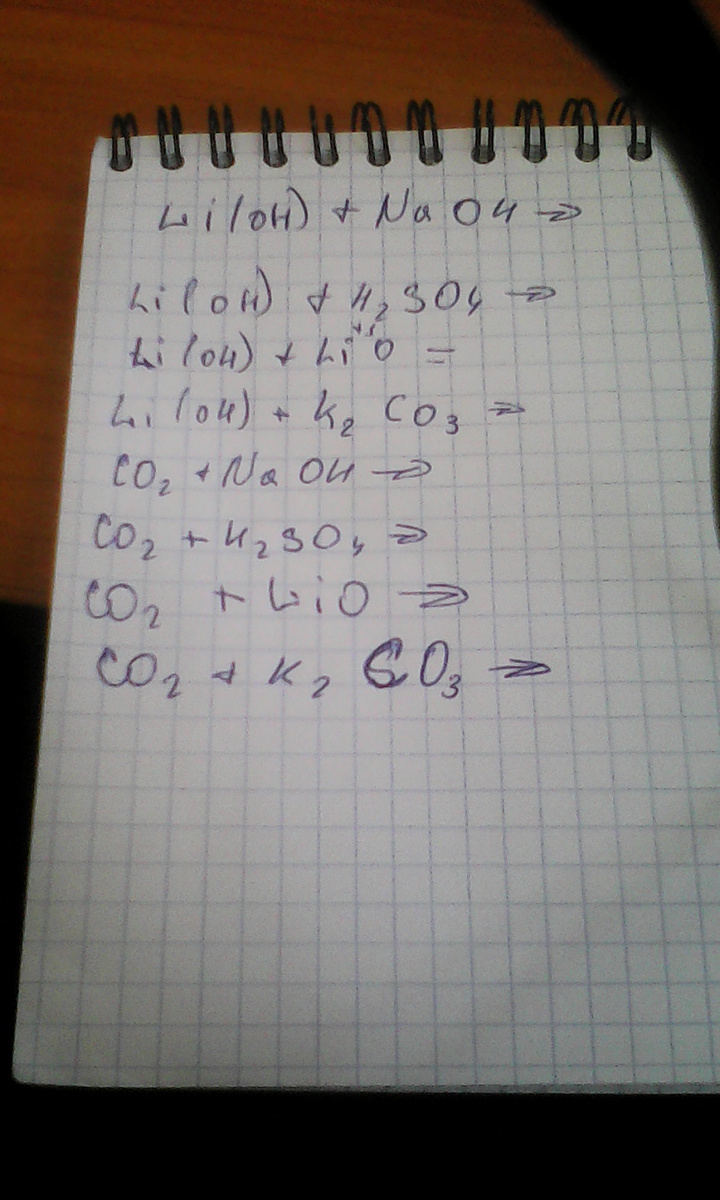 Li(OH) + NaOH →
Li(OH) + H₂SO₄ →
Li(OH) + LiO =
Li(OH) + K₂CO₃ →
CO₂ + NaOH →
CO₂ + H₂SO₄ →
CO₂ + LiO →
CO₂ + K₂CO₃ →